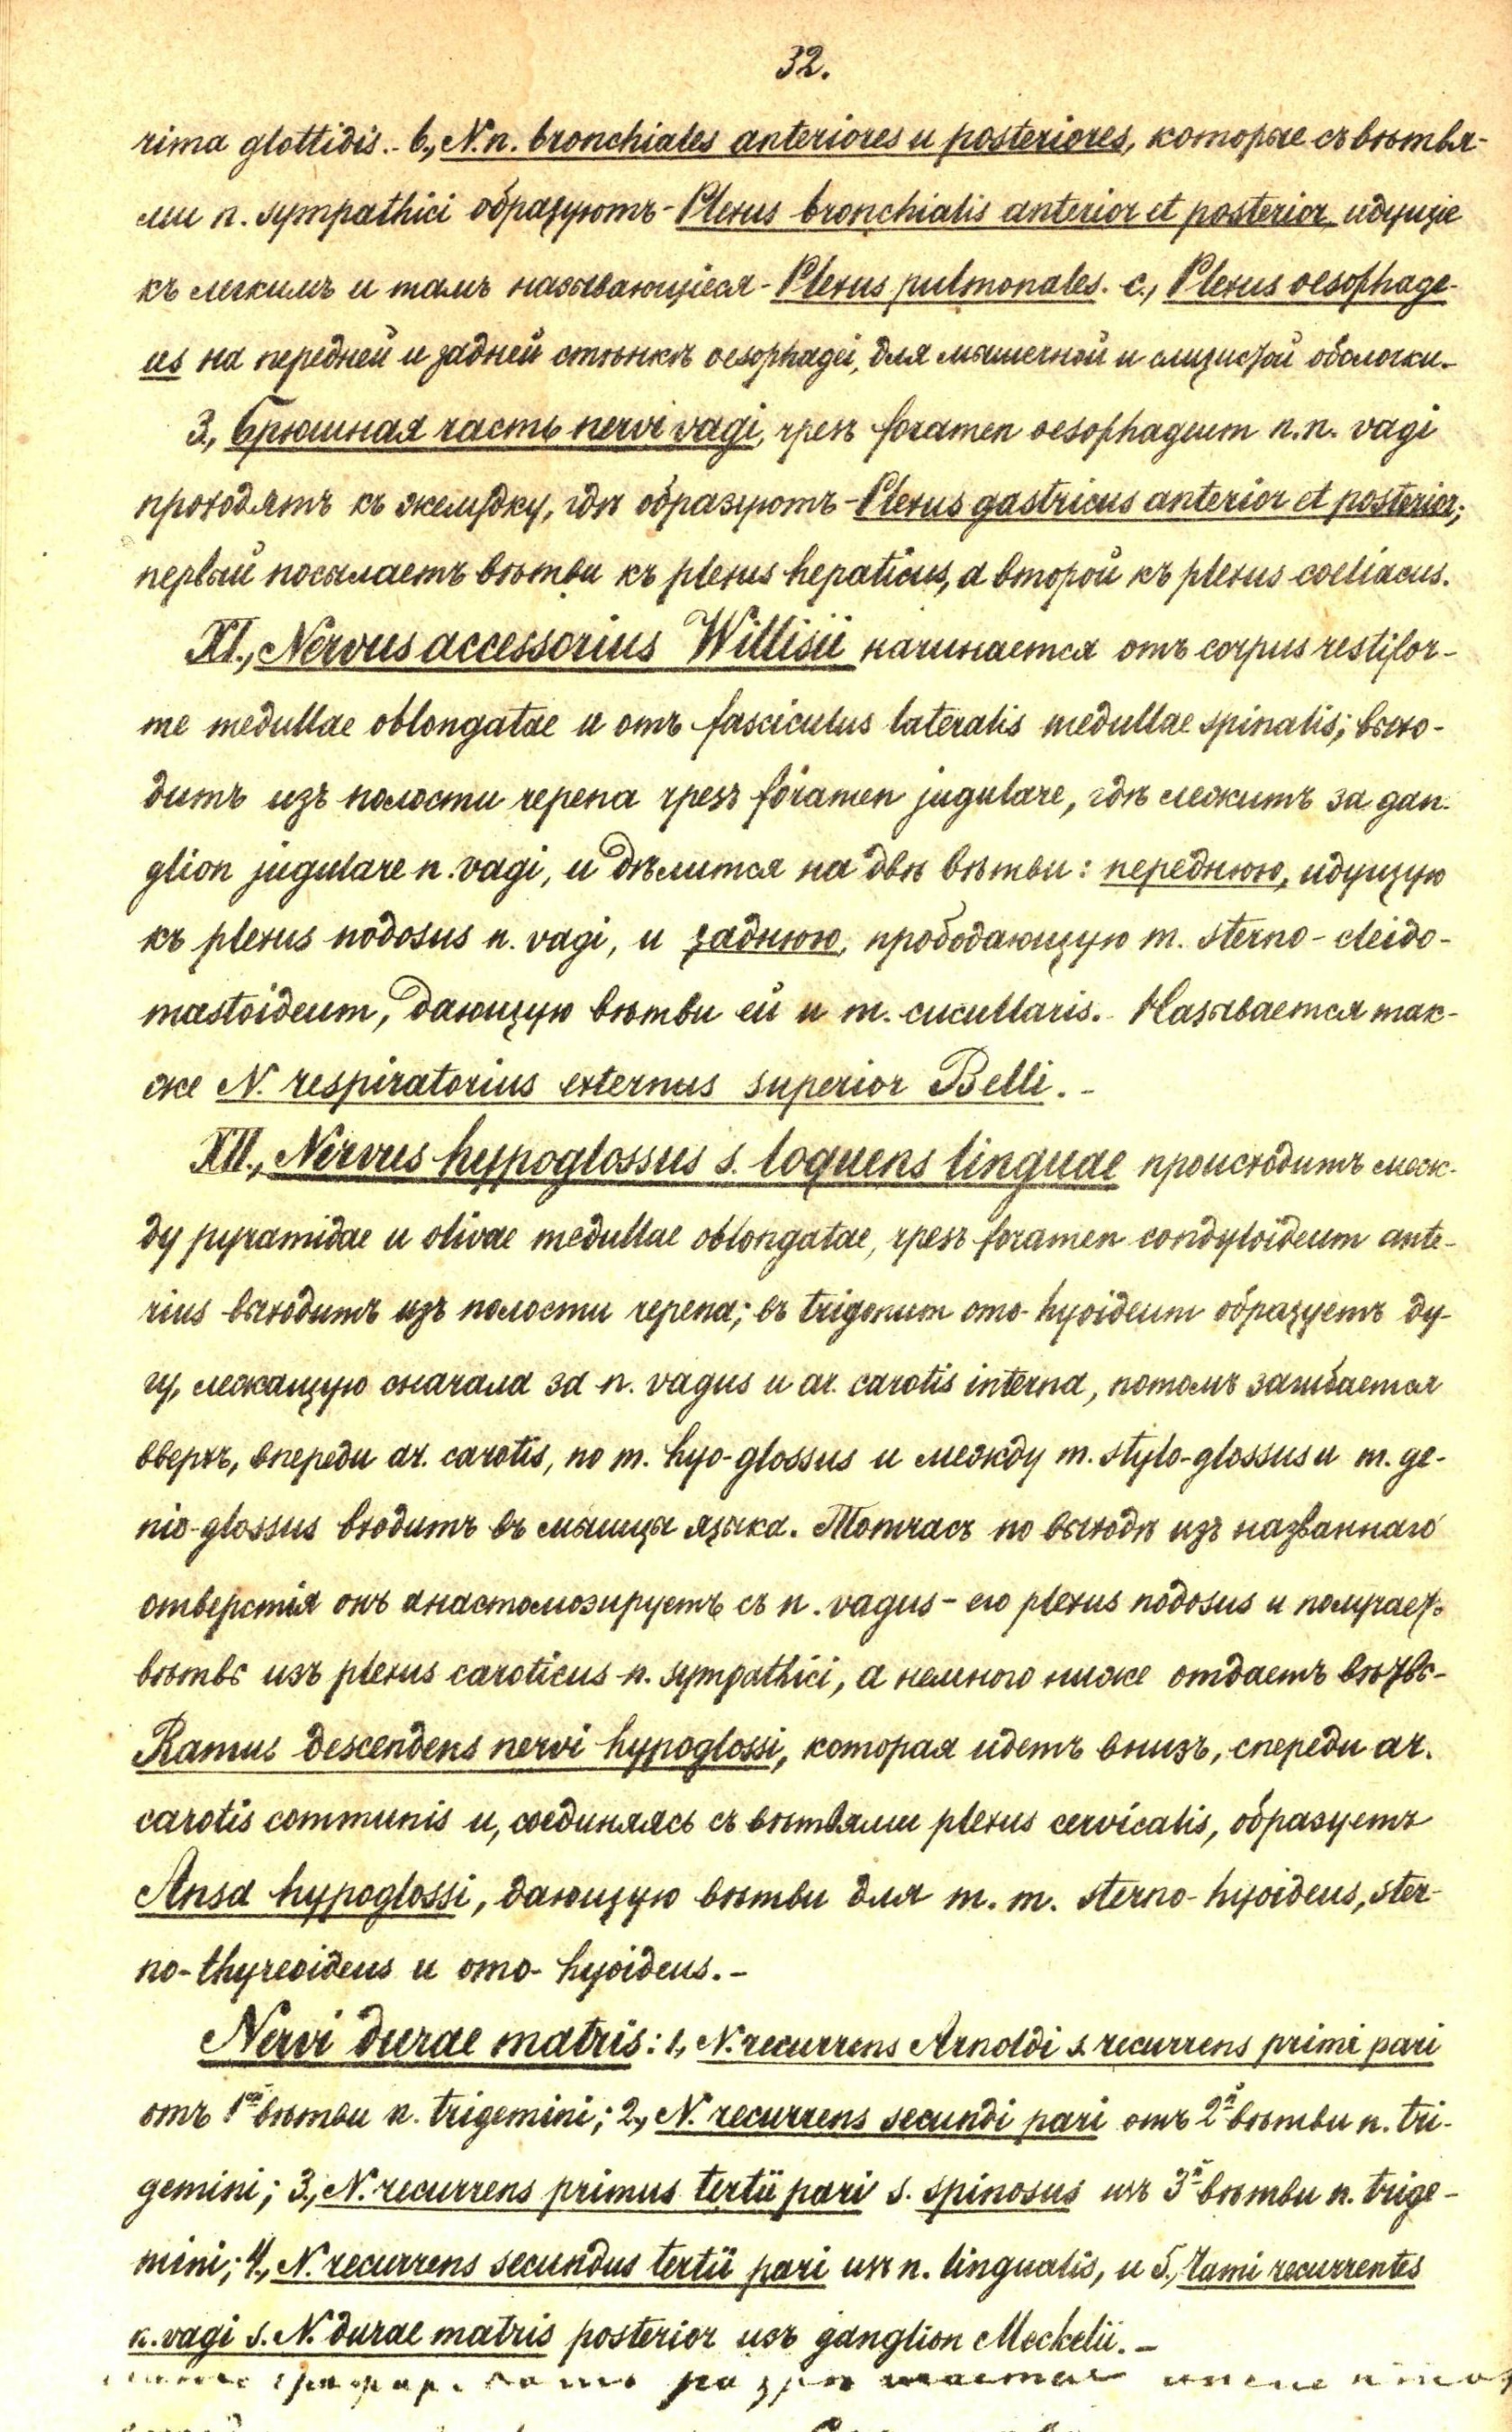 32.
rima glottidis.- b., N.n. bronchiales anteriores и posteriores, которые съ вѣтвя-
ми n. sympathici образуютъ - Plexus bronchialis anterior et posterior, идущіе
къ легкимъ и тамъ называющіеся - Plexus pulmonales. c., Plexus oesophage-
us на передней и задней стѣнкѣ oesophagei, для мышечной и слизистой оболочки.-
3., Брюшная часть nervi vagi, чрезъ foramen oesophageum n.n. vagi
проходятъ къ желудку, гдѣ образуютъ - Plexus gastricus anterior et posterior;
первый посылаетъ вѣтви къ plexus hepaticus, а второй къ plexus coeliacus.
XI., Nervus accessorius Willisii начинается отъ corpus restifor-
me medullae oblongatae и отъ fasciculus lateralis medullae spinalis; выхо-
дитъ изъ полости черепа чрезъ foramen jugulare, гдѣ лежитъ за gan-
glion jugulare n. vagi, и дѣлится на двѣ вѣтви: переднюю, идущую
къ plexus nodosus n. vagi, и заднюю, прободающую m. sterno-cleido-
mastoideum, дающую вѣтви ей и m. cucullaris. Называется так-
же N. respiratorius externus superior Belli.-
XII., Nervus hypoglossus s. loquens linguae происходитъ меж-
ду pyramidae и olivae medullae oblongatae, чрезъ foramen condyloideum ante-
rius выходитъ изъ полости черепа; въ trigonum omo-hyoideum образуетъ ду-
гу, лежащую сначала за n. vagus и ar. carotis interna, потомъ загибается
вверхъ, впереди ar. carotis, по m. hyo-glossus и между m. stylo-glossus и m. ge-
nio-glossus входитъ въ мышцы языка. Тотчасъ по выходѣ изъ названнаго
отверстія онъ анастомозируетъ съ n. vagus - его plexus nodosus и получаетъ
вѣтвь изъ plexus caroticus n. sympathici, а немного ниже отдаетъ вѣтвь-
Ramus descendens nervi hypoglossi, которая идетъ внизъ, спереди ar.
carotis communis и, соединяясь съ вѣтвями plexus cervicalis, образуетъ
Ansa hypoglossi, дающую вѣтви для m.m. sterno-hyoideus, ster-
no-thyreoideus и omo-hyoideus.-
Nervi durae matris: 1., N. recurrens Arnoldi s. recurrens primi pari
отъ 1ой вѣтви n. trigemini; 2., N. recurrens secundi pari отъ 2й вѣтви n. tri-
gemini; 3., N. recurrens primus tertii pari s. spinosus изъ 3й вѣтви n. trige-
mini; 4., N. recurrens secundus tertii pari изъ n. lingualis, и 5., Rami recurrentes
n. vagi s. N. durae matris posterior изъ ganglion Meckelii.-